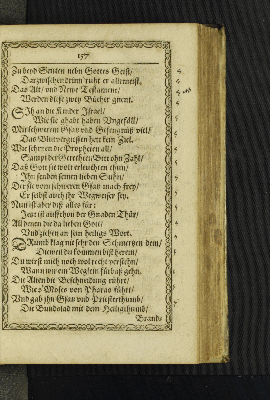 157
Zu beyd Seiten nebn Gottes Geist/
Darzwischen drinn ruht er allermeist.
Das Alt/ und Newe Testament/
Werden diese zwey Bücher gnent.
Sih an die Kinder Israel/
Wie sie ghabt haben Ungefäll/
Mit schwerem Gsatz und Gefengnuß viel/
Das Blutvergiessen hett kein Ziel.
Wie schryen die Propheten all/
Sampt der Gerechten Bitt ohn Zahl/
Daß Gott sie wolt erleuchten thun/
Ihn senden seinen lieben Suhn/
Der sie vom schweren Gsatz mach frey/
Er selbst auch ihr Wegweiser sey.
Nun ist aber diß alles für:
Jetzt ist auffthon der Gnaden Thür/
All denen die da lieben Gott/
Und gehen an sein heiligs Wort.
Drumb klag nit sehr den Schmertzen dein/
Dieweil du kommen bist herein/
Du wirst mich noch wol recht verstehn/
Wann wir ein Weglein fürbaß gehn.
Die Alten die Beschneidung rührt/
Wies Moses von Pharao führt/
Und gab ihn Gsatz und Priesterthumb/
Die Bundslad mit dem Heiligthumb/
Brand-